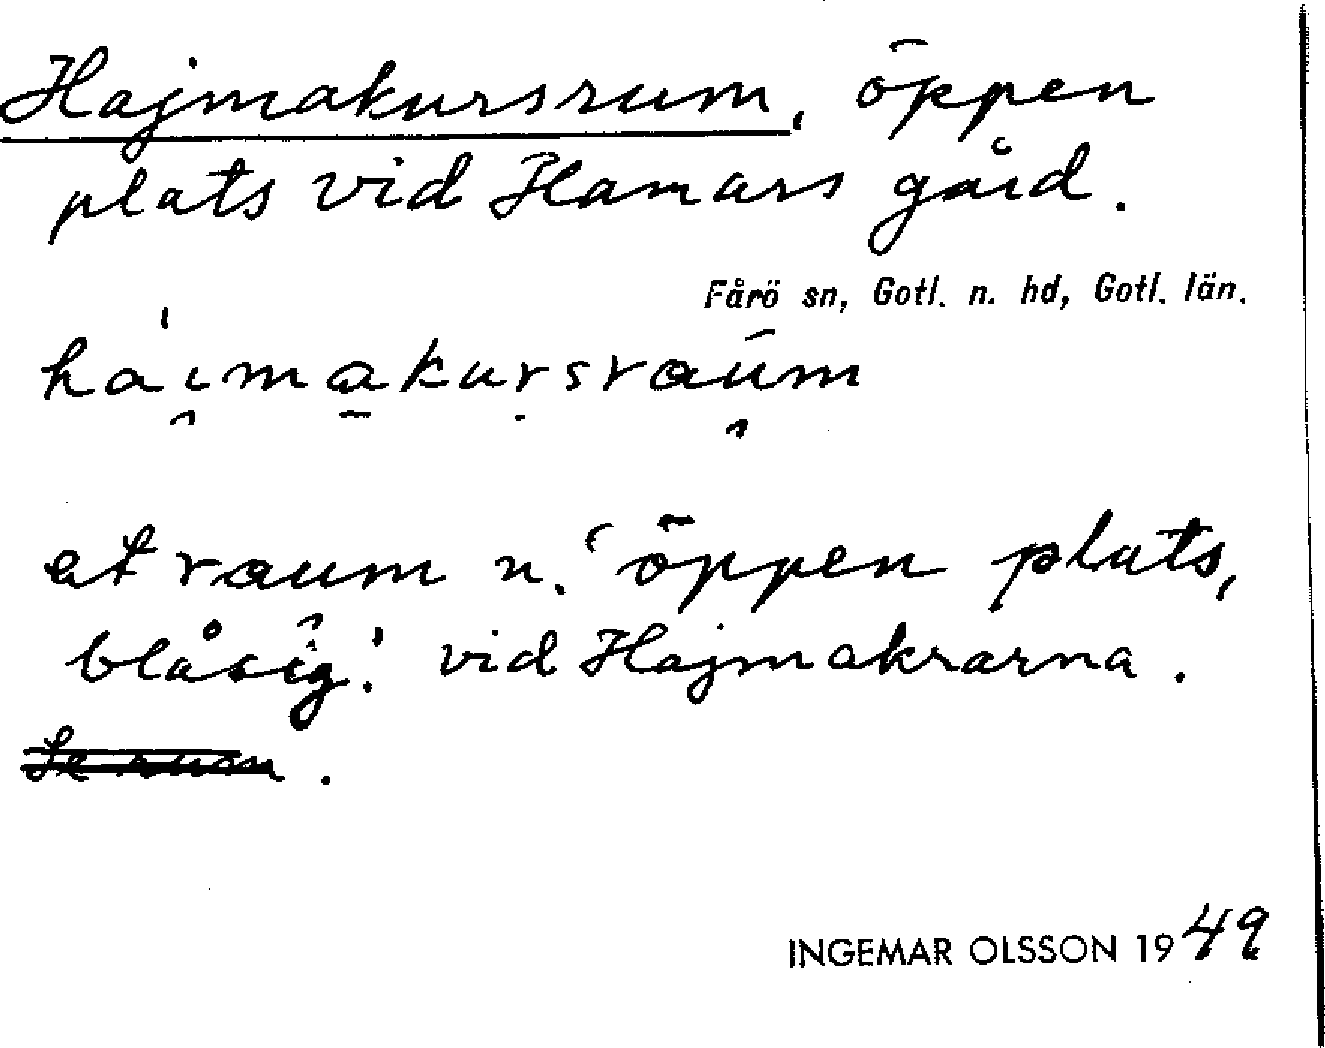 Hajmakursrum, öppen
plats vid Hamars gård.
Fårö sn, Gotl. n. hd, Gotl. län.
háimakursraum
et raum n. 'öppen plats,
blåsig'. vid Hajmakrarna.
INGEMAR OLSSON 1949